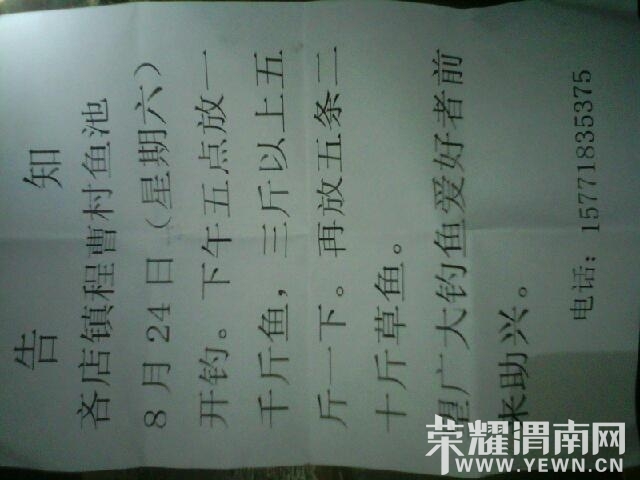 告 知
吝店镇程曹村鱼池
8月24日（星期六）
开钓。下午五点放一
千斤鱼，三斤以上五
斤一下。再放五条二
十斤草鱼。
望广大钓鱼爱好者前
来助兴。
电话：15771835375
荣耀渭南网
WWW.YEWN.CN